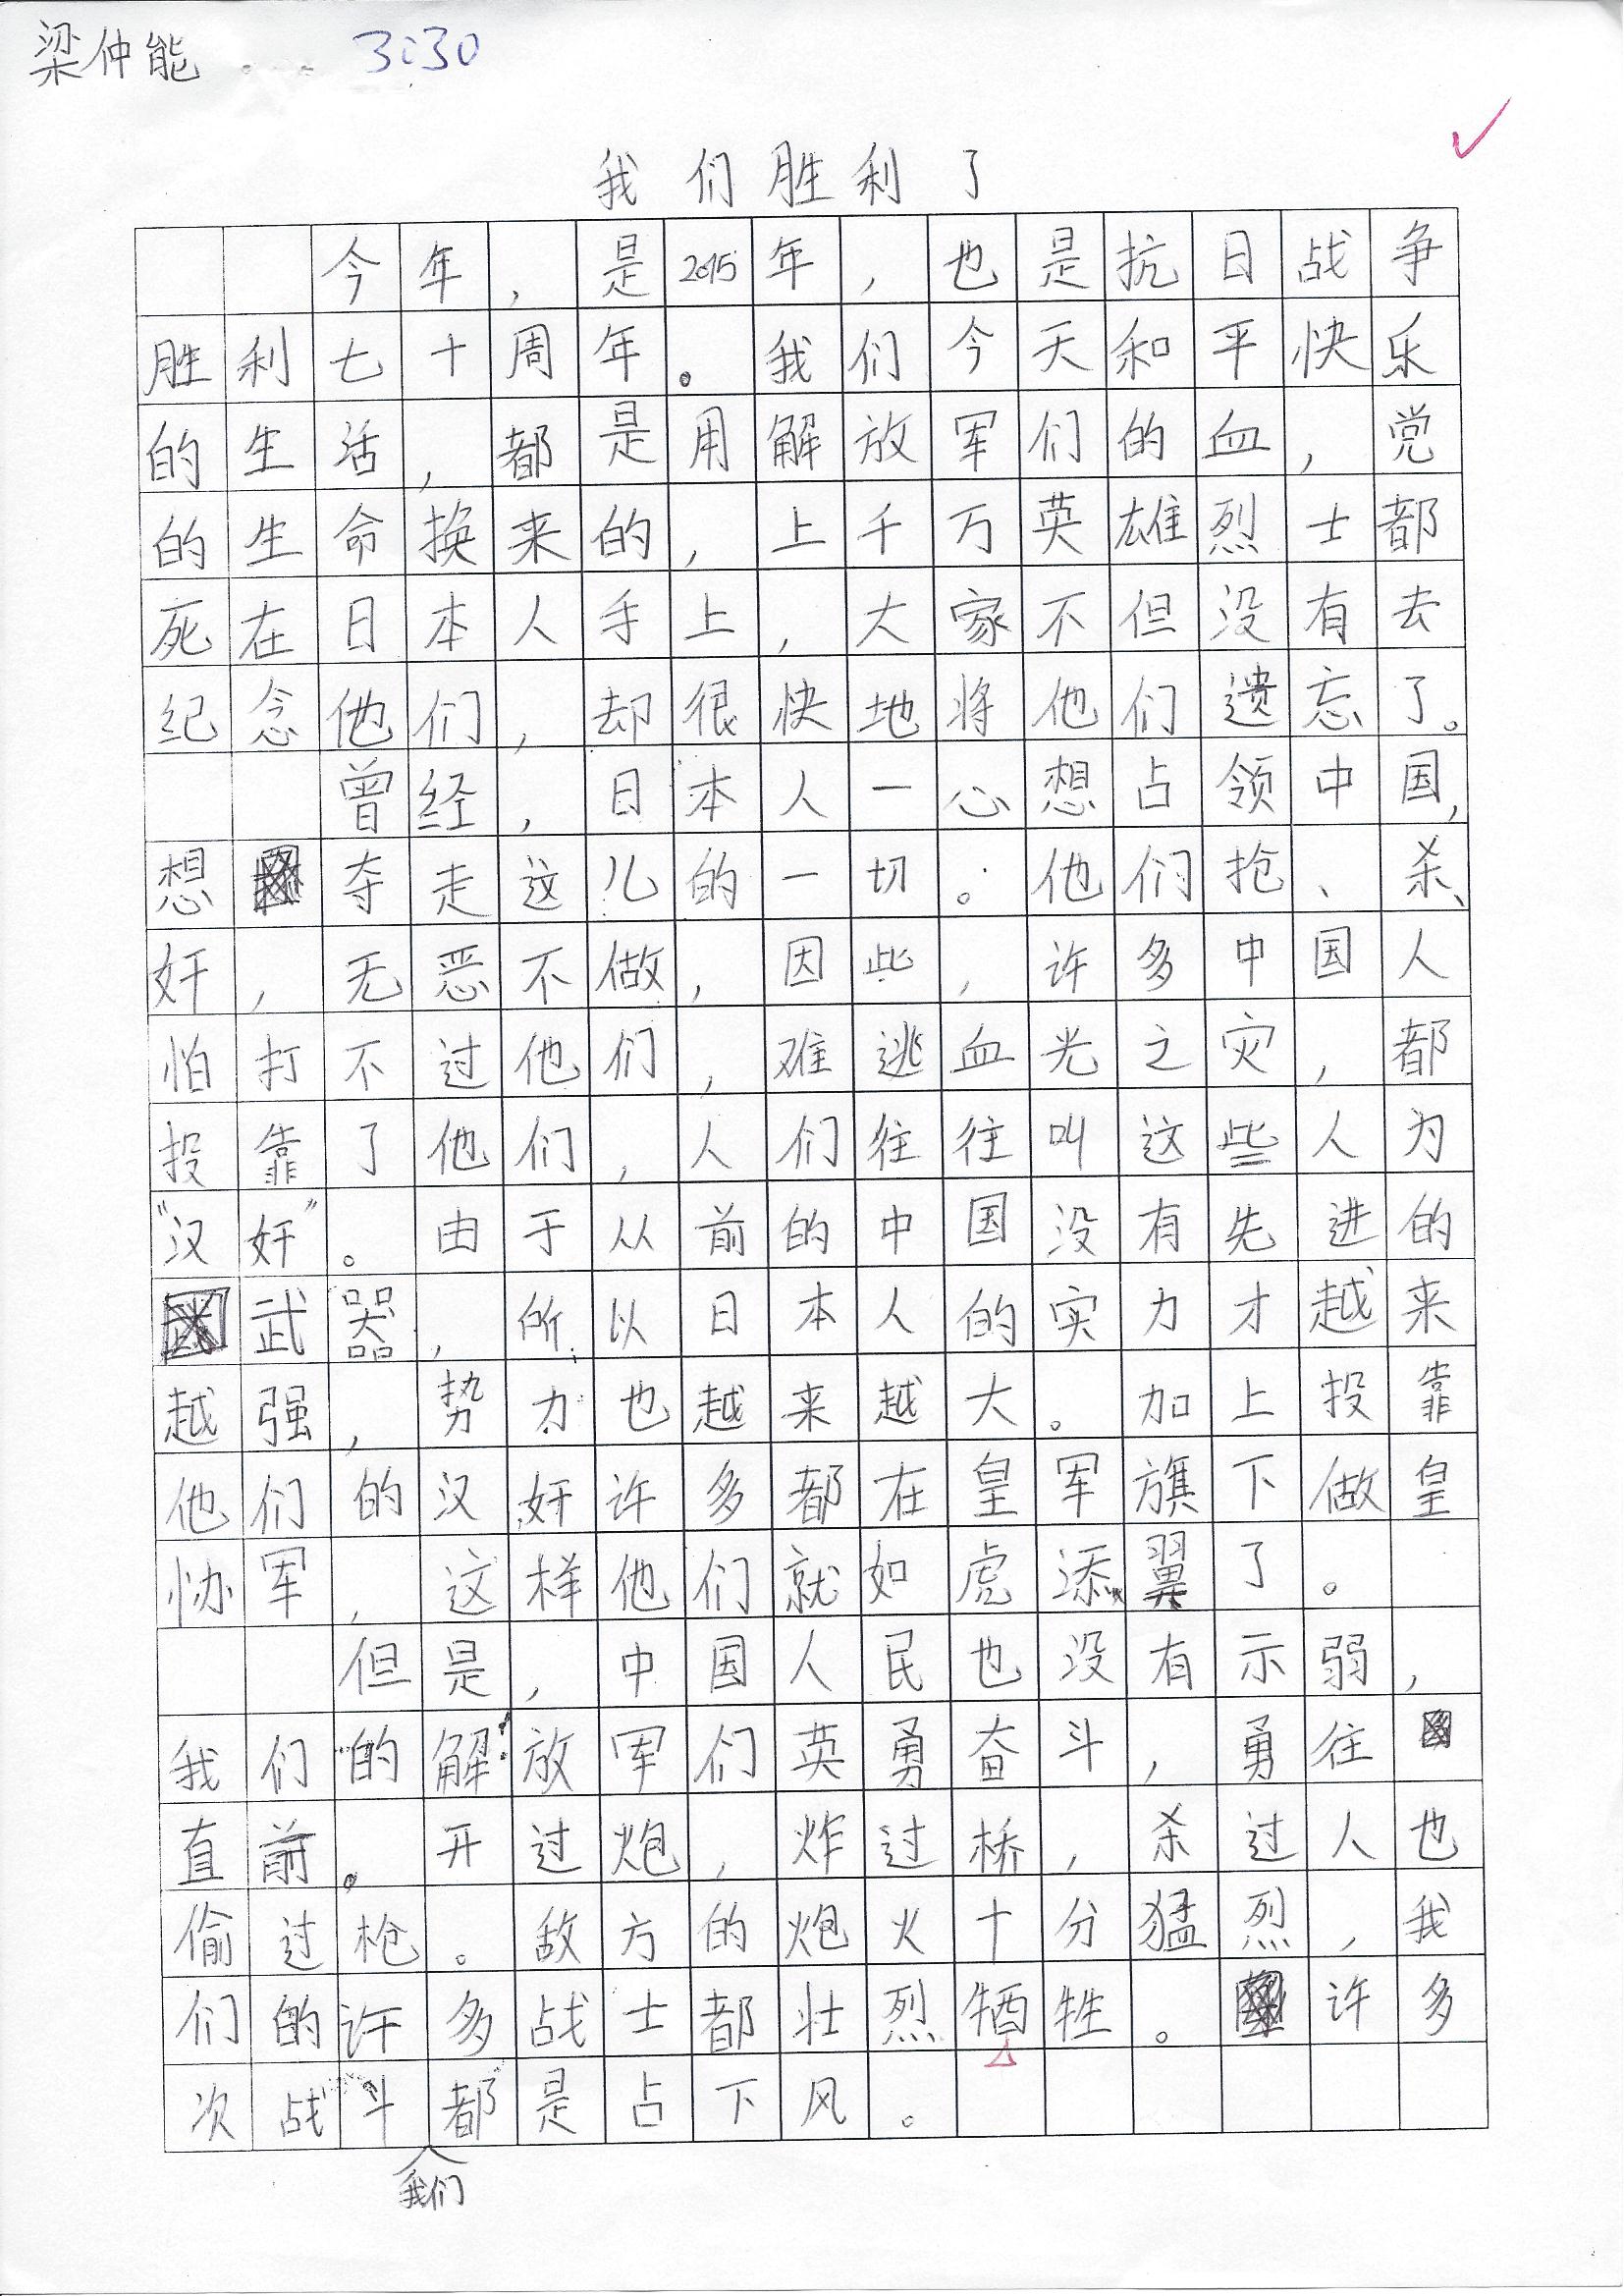 梁仲能 3:30
我们胜利了
今年，是2015年，也是抗日战争
胜利七十周年。我们今天和平快乐
的生活，都是用解放军们的血，党
的生命换来的，上千万英雄烈士都
死在日本人手上，大家不但没有去
纪念他们，却很快地将他们遗忘了。
曾经，日本人一心想占领中国，
想夺走这儿的一切。他们抢、杀、
奸，无恶不做，因此，许多中国人
怕打不过他们，难逃血光之灾，都
投靠了他们，人们往往叫这些人为
“汉奸”。由于从前的中国没有先进的
武器，所以日本人的实力才越来
越强，势力也越来越大。加上投靠
他们的汉奸许多都在皇军旗下做皇
协军，这样他们就如虎添翼了。
但是，中国人民也没有示弱，
我们的解放军们英勇奋斗，勇往
直前。开过炮，炸过桥，杀过人也
偷过枪。敌方的炮火十分猛烈，我
们的许多战士都壮烈牺牲。许多
次战斗我们都是占下风。